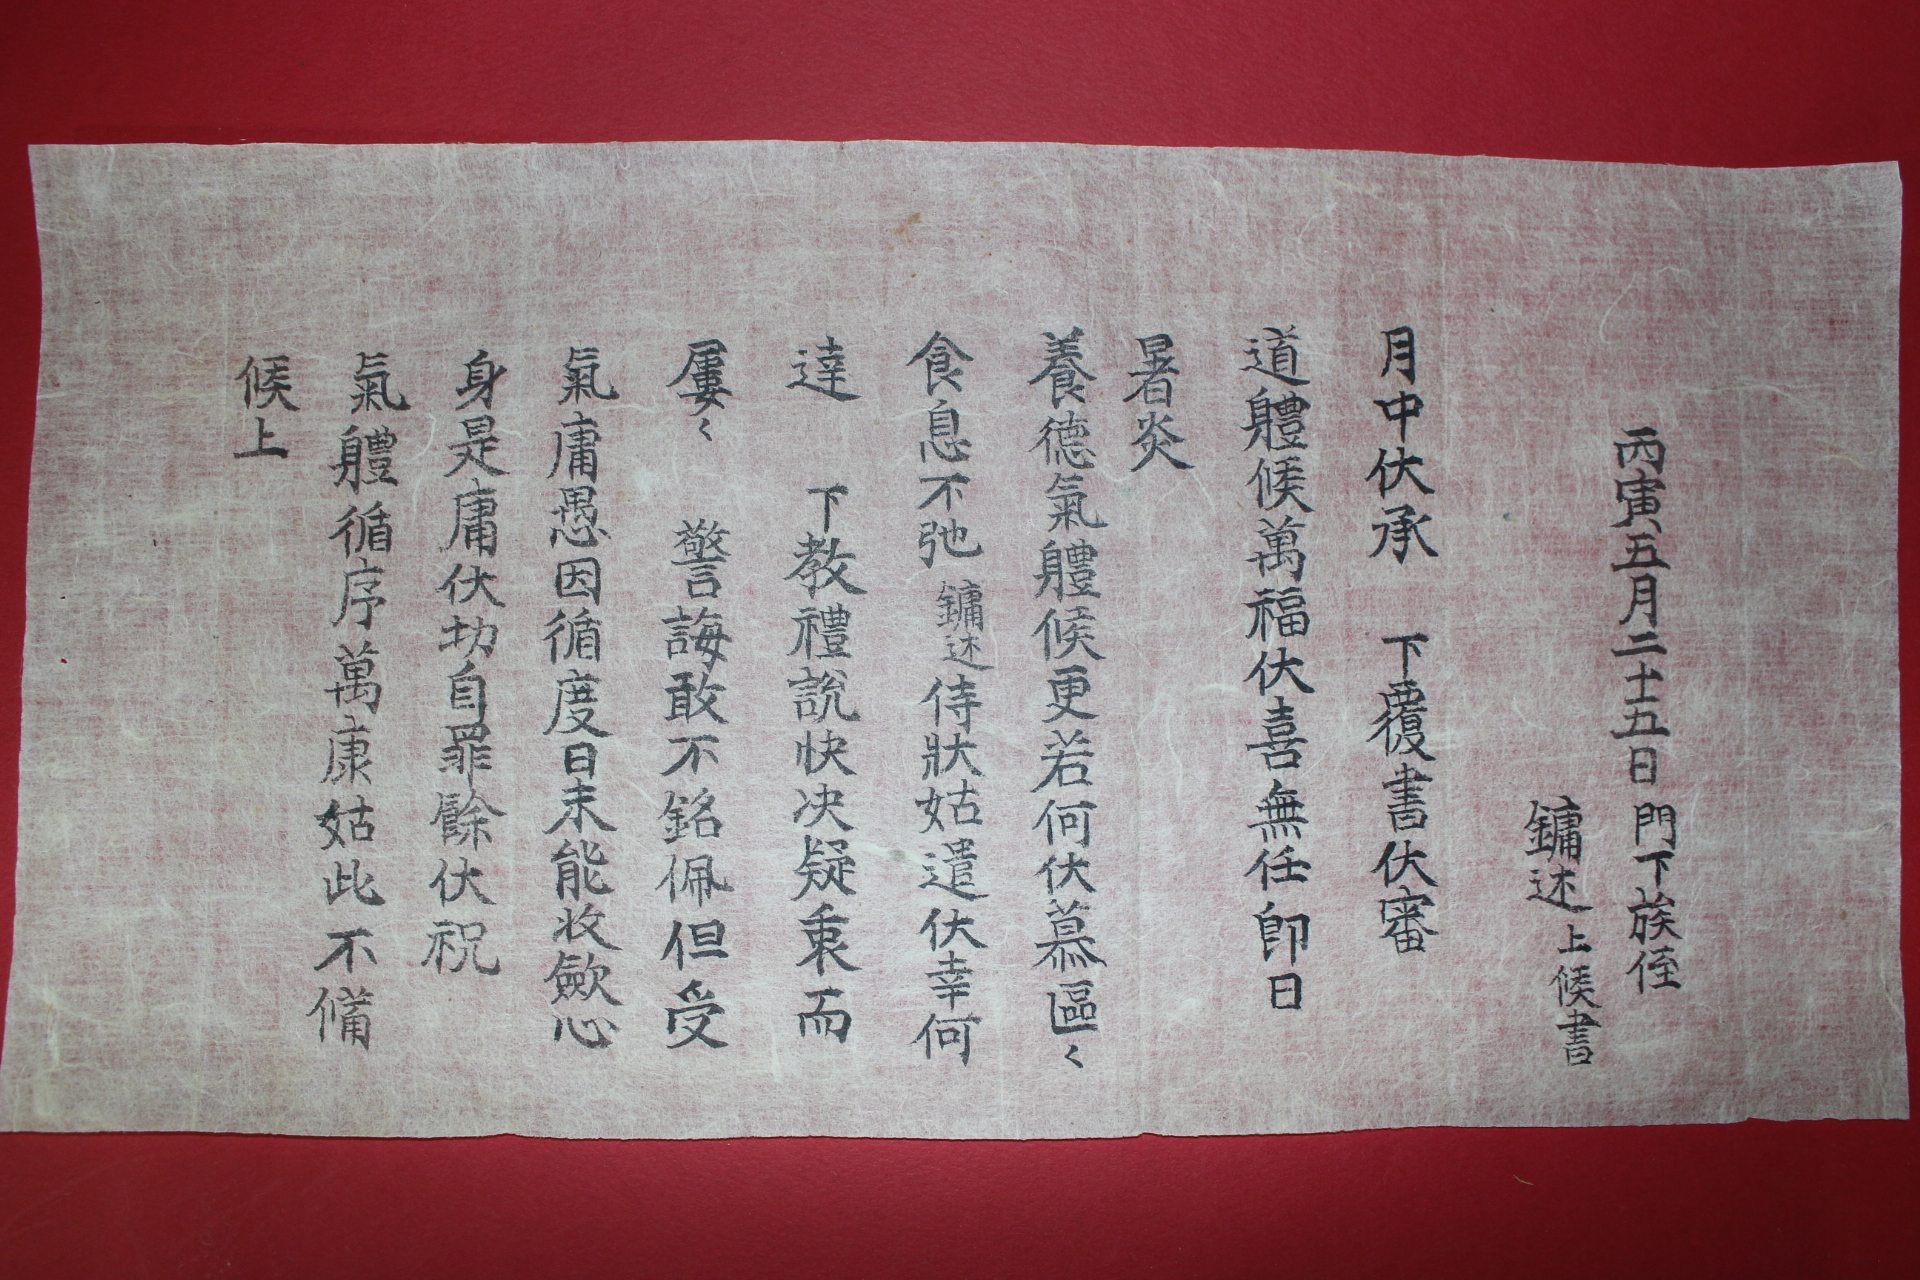 丙寅五月二十五日門下族侄
鏞述上候書
月中伏承 下覆書伏審
道體候萬福伏喜無任卽日
暑炎
養德氣體候更若何伏慕區〻
食息不弛鏞述侍狀姑遣伏幸何
達 下教禮說快决疑秉而
屢〻 警誨敢不銘佩但受
氣庸愚因循度日未能收歛心
身是庸伏切自罪餘伏祝
氣體循序萬康姑此不備
候上